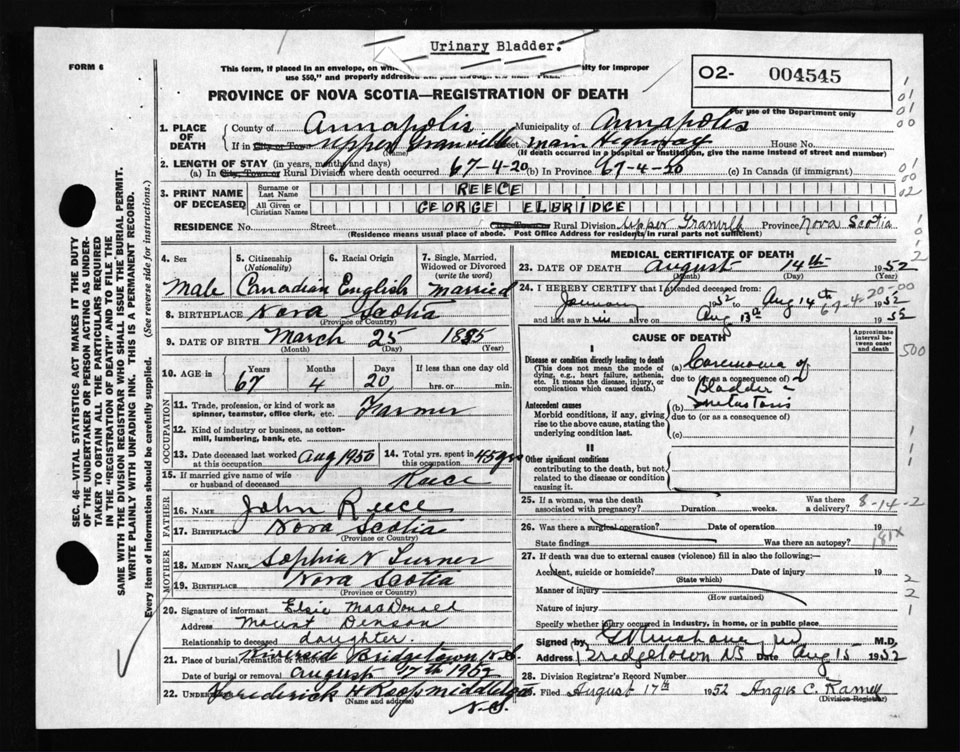 Urinary Bladder.
FORM 6
This form, if placed in an envelope, on
for Improper
use $50," and properly addressed
02- 004545
PROVINCE OF NOVA SCOTIA—REGISTRATION OF DEATH
For use of the Department only
1. PLACE OF DEATH
County of Annapolis Municipality of Annapolis
If in City or Town Upper Granville Street Main Highway House No.
(Name) (If death occurred in a hospital or institution, give the name instead of street and number)
2. LENGTH OF STAY (in years, months and days)
(a) In City, Town or Rural Division where death occurred 67-4-20 (b) In Province 67-4-20 (c) In Canada (if immigrant)
3. PRINT NAME OF DECEASED
Surname or Last Name REECE
All Given or Christian Names GEORGE ELBRIDGE
RESIDENCE No. Street City or Town or Rural Division Upper Granville Province Nova Scotia
(Residence means usual place of abode. Post Office Address for residents in rural parts not sufficient)
4. Sex
Male
5. Citizenship (Nationality)
Canadian
6. Racial Origin
English
7. Single, Married, Widowed or Divorced (write the word)
Married
8. BIRTHPLACE Nova Scotia
(Province or Country)
9. DATE OF BIRTH March 25 1885
(Month) (Day) (Year)
10. AGE in
Years Months Days If less than one day
67 4 20 hrs. or min.
OCCUPATION
11. Trade, profession, or kind of work as spinner, teamster, office clerk, etc. Farmer
12. Kind of industry or business, as cotton-mill, lumbering, bank, etc.
13. Date deceased last worked at this occupation Aug 1950
14. Total yrs. spent in this occupation 45 yrs
15. If married give name of wife or husband of deceased Reece
FATHER
16. Name John Reece
17. Birthplace Nova Scotia
(Province or Country)
MOTHER
18. MAIDEN NAME Sophia N
19. BIRTHPLACE Nova Scotia
(Province or Country)
20. Signature of informant Elsie MacDonald
Address Mount Denson
Relationship to deceased daughter.
21. Place of burial, cremation or removal Riverside Bridgetown N.S.
Date of burial or removal August 17th 1952
22. Undertaker Frederick H Roop Middleton
(Name and address) N.S.
MEDICAL CERTIFICATE OF DEATH
23. DATE OF DEATH August 14th 1952
(Month) (Day) (Year)
24. I HEREBY CERTIFY that I attended deceased from:
1952 to Aug 14th 1952
and last saw him alive on Aug 13th 1952
67-4-20-00
CAUSE OF DEATH
Approximate interval between onset and death
I
Disease or condition directly leading to death
(This does not mean the mode of dying, e.g., heart failure, asthenia, etc. It means the disease, injury, or complication which caused death.)
(a) Carcinoma of
due to (or as a consequence of)
Bladder -
Antecedent causes
Morbid conditions, if any, giving rise to the above cause, stating the underlying condition last.
(b) metastasis
due to (or as a consequence of)
(c)
II
Other significant conditions
contributing to the death, but not related to the disease or condition causing it.
25. If a woman, was the death associated with pregnancy? Duration weeks. Was there a delivery?
8-14-2
26. Was there a surgical operation? Date of operation 19
State findings Was there an autopsy?
181X
27. If death was due to external causes (violence) fill in also the following:—
Accident, suicide or homicide? Date of injury 19
(State which)
Manner of injury
(How sustained)
Nature of injury
Specify whether injury occurred in industry, in home, or in public place
Signed by M.D.
Address Bridgetown NS Date Aug 15 1952
28. Division Registrar's Record Number
Filed August 17th 1952 Angus C. Ramey
(Division Registrar)
SEC. 46—VITAL STATISTICS ACT MAKES IT THE DUTY
OF THE UNDERTAKER OR PERSON ACTING AS UNDER-
TAKER TO OBTAIN ALL THE PARTICULARS REQUIRED
IN THE "REGISTRATION OF DEATH" AND TO FILE THE
SAME WITH THE DIVISION REGISTRAR WHO SHALL ISSUE THE BURIAL PERMIT.
WRITE PLAINLY WITH UNFADING INK. THIS IS A PERMANENT RECORD.
Every item of information should be carefully supplied. (See reverse side for instructions.)
500